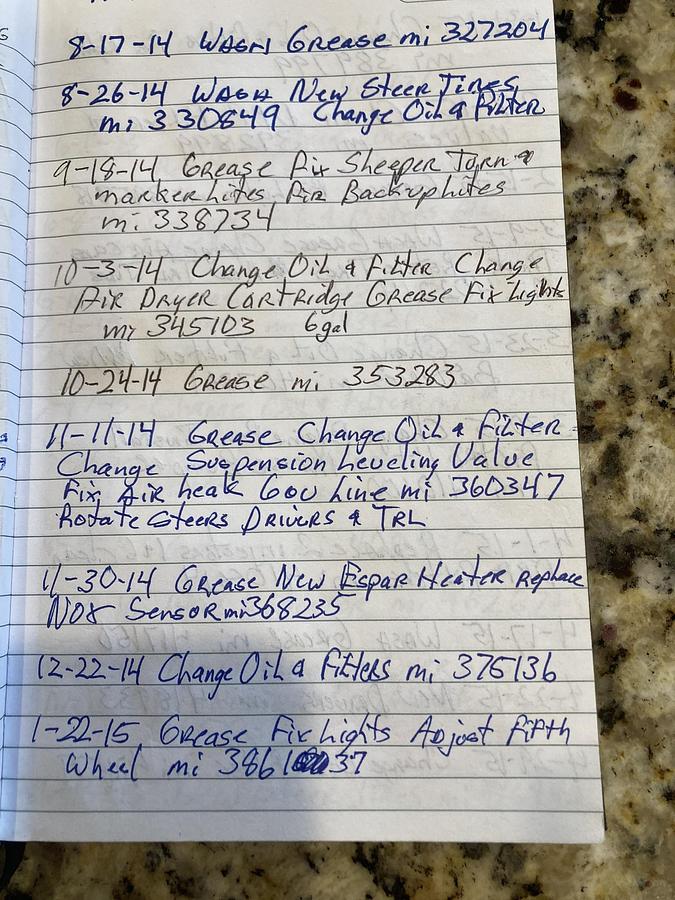 8-17-14 Wash Grease mi 327204
8-26-14 Wash New Steer Tires
mi 330849 Change Oil & Filter
9-18-14 Grease Fix Sleeper Turn &
marker lites Fix Backup lites
mi 338734
10-3-14 Change Oil & Filter Change
Air Dryer Cartridge Grease Fix Lights
mi 345103 6gal
10-24-14 Grease mi 353283
11-11-14 Grease Change Oil & Filter
Change Suspension Leveling Value
Fix Air Leak Gov Line mi 360347
Rotate Steers Drivers & TRL
11-30-14 Grease New Espar Heater Replace
NOX Sensor mi 368235
12-22-14 Change Oil & Filters mi 376136
1-22-15 Grease Fix Lights Adjust Fifth
Wheel mi 386137